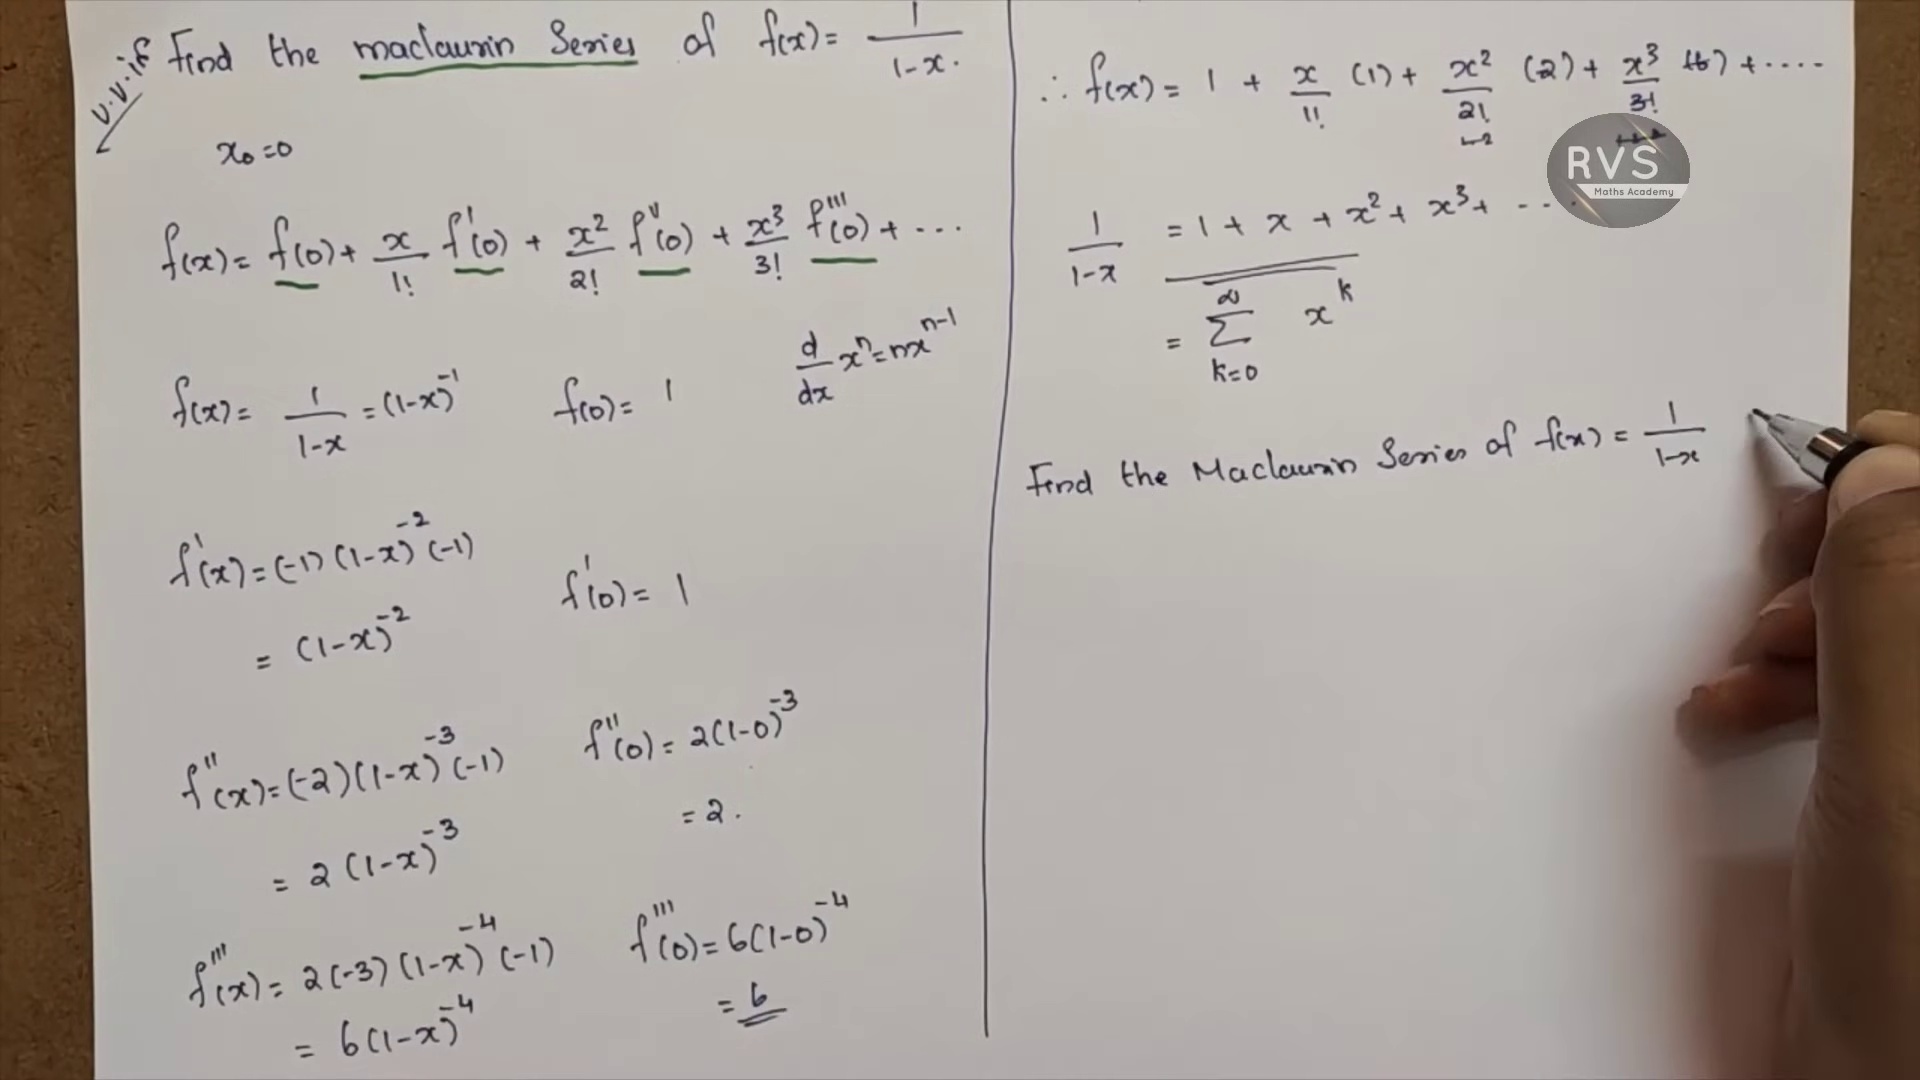 v.v.if Find the maclaurin Series of f(x) = 1/(1-x).
x₀=0
f(x) = f(0) + x/1! f'(0) + x²/2! f''(0) + x³/3! f'''(0) + ...
d/dx xⁿ = nxⁿ⁻¹
f(x) = 1/(1-x) = (1-x)⁻¹ f(0) = 1
f'(x) = (-1)(1-x)⁻²(-1) f'(0) = 1
= (1-x)⁻²
f''(x) = (-2)(1-x)⁻³(-1) f''(0) = 2(1-0)⁻³
= 2.
= 2(1-x)⁻³
f'''(x) = 2(-3)(1-x)⁻⁴(-1) f'''(0) = 6(1-0)⁻⁴
= 6
= 6(1-x)⁻⁴
∴ f(x) = 1 + x/1! (1) + x²/2! (2) + x³/3! (6) + ....
RVS
Maths Academy
1/(1-x) = 1 + x + x² + x³ + ...
= ∑ₖ₌₀^∞ xᵏ
Find the Maclaurin Series of f(x) = 1/(1-x)